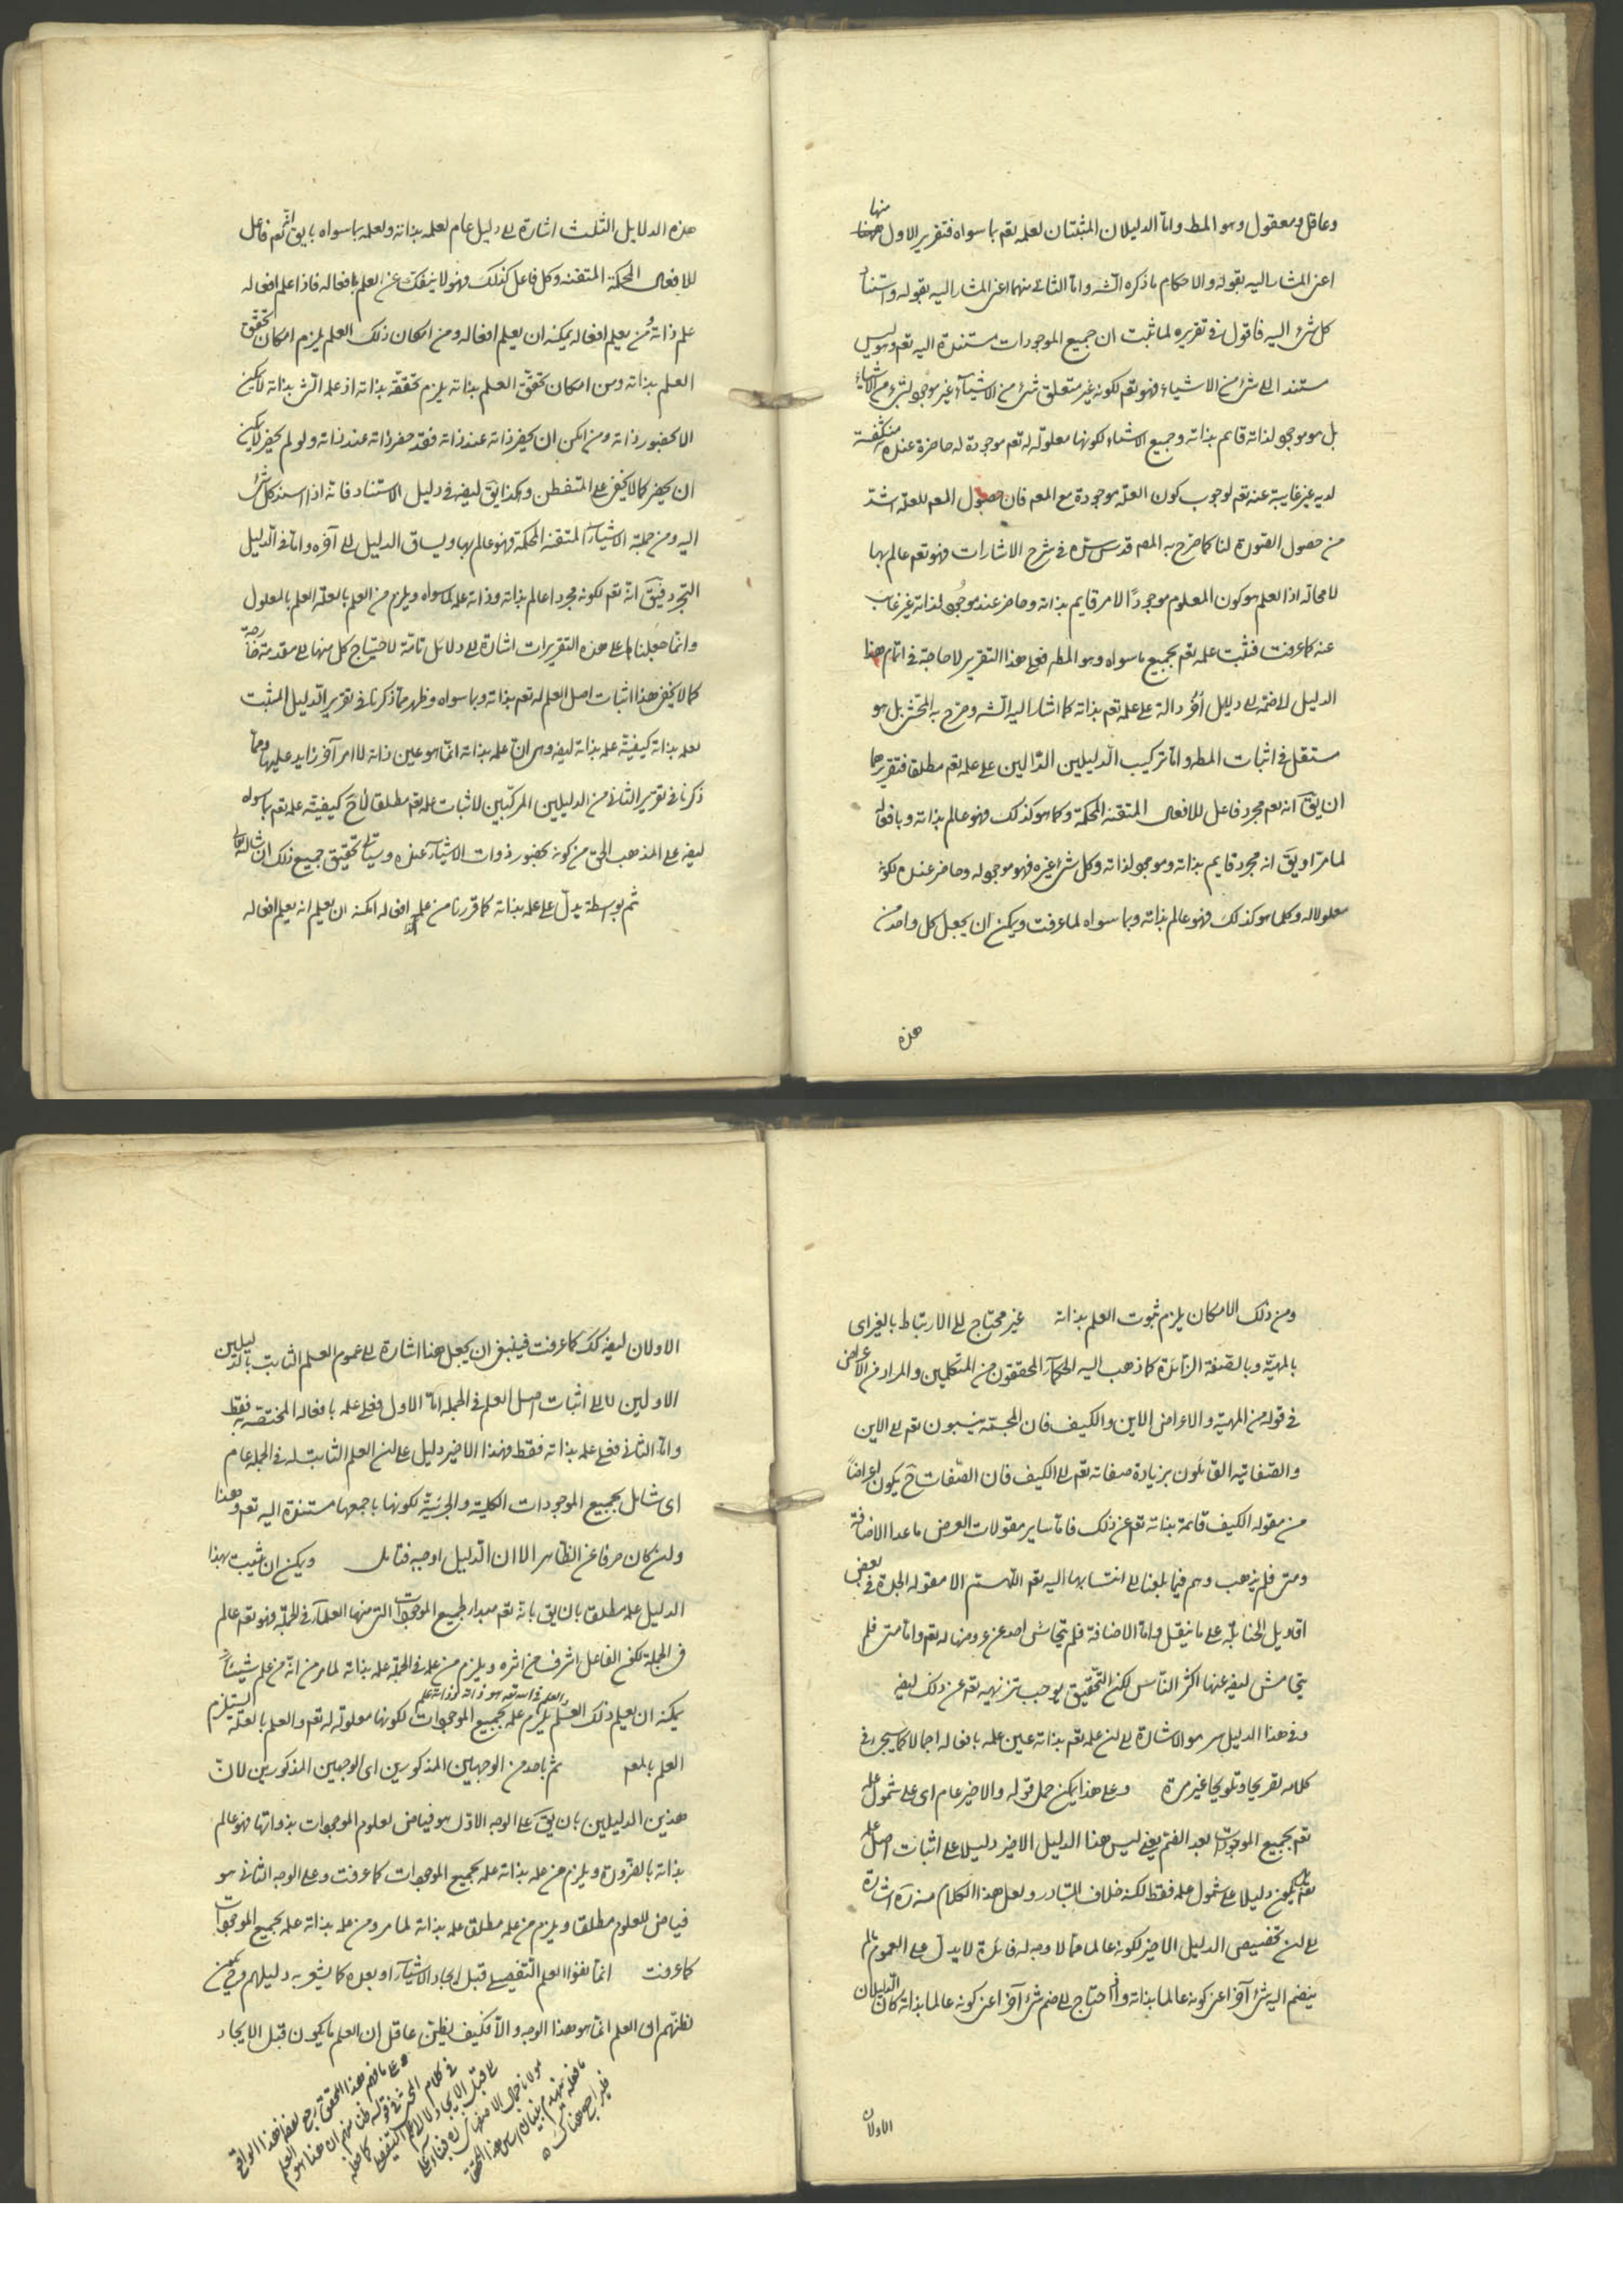 وعاقل ومعقول وهو المط واما الدليلان المثبتان لعلمه تعم بما سواه فتقرير الاول منها
اعنى المشار اليه بقوله والاحكام ما ذكره الشه واما الثانى منهما اعنى المشار اليه بقوله واستناد
كل شئ اليه فاقول فى تقريره لما ثبت ان جميع الموجودات مستندة اليه تعم وهو ليس
مستندا الى شئ من الاشياء فهو تعم لكونه غير متعلق شئ من الاشيآء غير موجود لشئ من الاشياء
بل هو موجود لذاته قايم بذاته وجميع الاشياء لكونها معلولة له تعم موجودة له حاضرة عنده منكشفة
لديه غير غايبة عنه تعم لوجوب كون العلة موجودة مع المعم فان حصول المعم للعلة اشد
من حصول الصورة لنا كما صرح به المصم قدس سره فى شرح الاشارات فهو تعم عالم بها
لا محالة اذ العلم هو كون المعلوم موجودًا لامر قايم بذاته وحاضر عند موجود لذاته غير غايب
عنه كما عرفت فثبت علمه تعم بجميع ما سواه وهو المطم فعلى هذا التقرير لا حاجة فى اتمام هذا
الدليل الى ضمه الى دليل آخر دالة على علمه تعم بذاته كما اشار اليه الشه وصرح به المحشى بل هو
مستقل فى اثبات المطم واما تركيب الدليلين الدالين على علمه تعم مطلقا فتقريرها
ان يق انه تعم مجرد فاعل للافعال المتقنة المحكمة وكلما هو كذلك فهو عالم بذاته وبافعاله
لما مر او يق انه مجرد قايم بذاته وموجود لذاته وكل شئ غيره فهو موجود له وحاضر عنده لكونه
معلولا له وكلما هو كذلك فهو عالم بذاته وبما سواه لما عرفت ويمكن ان يجعل كل واحد من
هذه
هذه الدلايل الثلث اشارة الى دليل عام لعلمه بذاته ولعلمه بما سواه بان يق انه تعم فاعل
للافعال المحكمة المتقنة وكل فاعل كذلك فهو لا ينفك عن العلم بافعاله فاذا علم افعاله
علم ذاته ومن يعلم افعاله يمكنه ان يعلم افعاله ومن امكان ذلك العلم يلزم امكان تحقق
العلم بذاته ومن امكان تحقق العلم بذاته يلزم تحققه بذاته اذ علم الشئ بذاته لا يكون
الا بحضور ذاته ومن امكن ان يحضر ذاته عند ذاته فقد حضر ذاته عند ذاته ولو لم يحضر لا يمكن
ان يحضر كما لا يخفى على المتفطن وهكذا يق ايضه فى دليل الاستناد فانه اذا استند كل شئ
اليه ومن جملة الاشياء المتقنة المحكمة فهو عالم بها ويساق الدليل الى آخره واما فى الدليل
التجرد فيق انه تعم لكونه مجردا عالم بذاته وذاته علة لما سواه ويلزم من العلم بالعلة العلم بالمعلول
وانما جعلنا ما على هذه التقريرات اشارة الى دلائل تامة لاحتياج كل منها الى مقدمة خارجة
كما لا يخفى هذا اثبات اصل العلم له تعم بذاته وبما سواه وظهر مما ذكرنا فى تقرير الدليل المثبت
لعلمه بذاته كيفية علمه بذاته ايضه وهى ان علمه بذاته انما هو عين ذاته لا امر آخر زايد عليها ومما
ذكرنا فى تقرير الثانى من الدليلين المركبين لاثبات علمه تعم مطلقا لاح كيفية علمه تعم بما سواه
ايضه على المذهب الحق من كونه بحضور ذوات الاشيآء عنده وسياتى تحقيق جميع ذلك ان شاء الله تعالى
ثم بواسطة يدل على علمه بذاته كما قررنا من علم افعاله امكنه ان يعلم انه يعلم افعاله
ومن ذلك الامكان يلزم ثبوت العلم بذاته غير محتاج الى الارتباط بالغير اى
بالمهية وبالصفة الزائدة كما ذهب اليه الحكمآء المحققون من المتكلمين والمراد من الاعراض
فى قوله من المهية والاعراض الاين والكيف فان المجسمة ينسبون تعم الى الاين
والصفاتية القائلون بزيادة صفاته تعم الى الكيف فان الصفات ح يكون اعراضا
من مقولة الكيف قائمة بذاته تعم عن ذلك فاما ساير مقولات العرض ما عدا الاضافة
ومتى فلم يذهب وهم فيما بلغنا الى انتسابها اليه تعم اللهم الا مقولة الجدة فى بعض
اقاويل الحنابلة على ما ينقل واما الاضافة فلم يتحاش احد عن عروضها له تعم واما متى فلم
يتحاش ايضه عنها اكثر الناس لكن التحقيق يوجب تنزيهه تعم عن ذلك ايضه
وفى هذا الدليل سر هو الاشارة الى ان علمه تعم بذاته عين علمه بافعاله اجمالا كما سيجئ فى
كلامه تصريحا وتلويحا غير مرة وعلى هذا يمكن حمل قوله والاخير عام اى على شمول علمه
تعم بجميع الموجودات بعد الضم يعنى ليس هذا الدليل الاخير دليلا على اثبات اصل علمه
تعم بل يكون دليلا على شمول علمه فقط لكنه خلاف المتبادر ولعل هذا الكلام منه ره اشارة
الى ان تخصيص الدليل الاخير لكونه عاما مما لا وجه له فانه لا يدل على العموم ما لم
ينضم اليه شئ آخر اعنى كونه عالما بذاته وان احتاج الى ضم شئ آخر اعنى كونه عالما بذاته كان الدليلان
الاولان
الاولان ايضه كك كما عرفت فينبغى ان يجعل هنا اشارة الى عموم العلم الثابت بالدليلين
الاولين لا الى اثبات اصل العلم فى الجملة اما الاول فعلى علمه بافعاله المختصة به فقط
واما الثانى فعلى علمه بذاته فقط فهذا الاخير دليل على ان العلم الثابت له فى الجملة عام
اى شامل بجميع الموجودات الكلية والجزئية لكونها باجمعها مستندة اليه تعم وهذا
وان كان صرفا عن الظاهر الا ان الدليل اوجبه فتامل ويمكن ان يثبت بهذا
الدليل علمه مطلقا بان يق بانه تعم مبدا لجميع الموجودات التى منها العلمآء فى الجملة فهو تعم عالم
فى الجملة لكون الفاعل اشرف من اثره ويلزم من علمه فى الجملة علمه بذاته لما مر من انه من علم شيئاً
يمكنه ان يعلم ذلك العلم يلزم علمه بجميع الموجودات لكونها معلولة له تعم والعلم بالعلة يستلزم
العلم بالمعم ثم باحد من الوجهين المذكورين اى الوجهين المذكورين لان
هذين الدليلين بان يق على الوجه الاول هو فياض لعلوم الموجودات بذواتها فهو عالم
بذاته بالضرورة ويلزم من علمه بذاته علمه بجميع الموجودات كما عرفت وعلى الوجه الثانى هو
فياض للعلوم مطلقا ويلزم من علمه مطلقا علمه بذاته لما مر ومن علمه بذاته علمه بجميع الموجودات
كما عرفت انما نفوا العلم التفصيلى قبل ايجاد الاشيآء او بعده كما يشعر به دليلهم
لظنهم ان العلم انما هو بهذا الوجه والا فكيف يظن عاقل ان العلم ما يكون قبل الايجاد